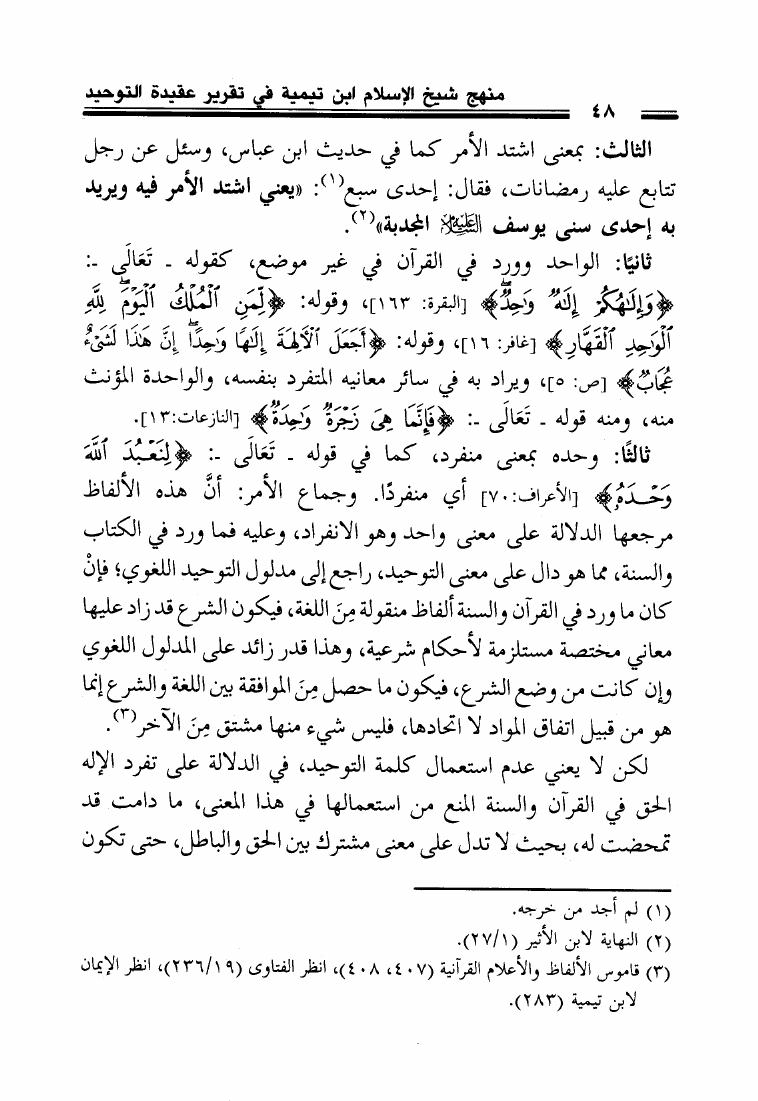 منهج شيخ الإسلام ابن تيمية في تقرير عقيدة التوحيد
٤٨
الثالث: بمعنى اشتد الأمر كما في حديث ابن عباس، وسئل عن رجل
تتابع عليه رمضانات، فقال: إحدى سبع(١): «يعني اشتد الأمر فيه ويريد
به إحدى سنى يوسف عليه السلام المجدبة»(٢).
ثانيًا: الواحد وورد في القرآن في غير موضع، كقوله ـ تَعَالَى ـ:
﴿وَإِلَٰهُكُمْ إِلَٰهٌ وَٰحِدٌ﴾ [البقرة: ١٦٣]، وقوله: ﴿لِّمَنِ ٱلْمُلْكُ ٱلْيَوْمَ لِلَّهِ
ٱلْوَٰحِدِ ٱلْقَهَّارِ﴾ [غافر: ١٦]، وقوله: ﴿أَجَعَلَ ٱلْـَٔالِهَةَ إِلَٰهًا وَٰحِدًا إِنَّ هَٰذَا لَشَىْءٌ
عُجَابٌ﴾ [ص: ٥]، ويراد به في سائر معانيه المتفرد بنفسه، والواحدة المؤنث
منه، ومنه قوله ـ تَعَالَى ـ: ﴿فَإِنَّمَا هِىَ زَجْرَةٌ وَٰحِدَةٌ﴾ [النازعات:١٣].
ثالثًا: وحده بمعنى منفرد، كما في قوله ـ تَعَالَى ـ: ﴿لِنَعْبُدَ ٱللَّهَ
وَحْدَهُۥ﴾ [الأعراف:٧٠] أي منفردًا. وجماع الأمر: أنَّ هذه الألفاظ
مرجعها الدلالة على معنى واحد وهو الانفراد، وعليه فما ورد في الكتاب
والسنة، مما هو دال على معنى التوحيد، راجع إلى مدلول التوحيد اللغوي؛ فإنْ
كان ما ورد في القرآن والسنة ألفاظ منقولة مِنَ اللغة، فيكون الشرع قد زاد عليها
معاني مختصة مستلزمة لأحكام شرعية، وهذا قدر زائد على المدلول اللغوي
وإن كانت من وضع الشرع، فيكون ما حصل مِنَ الموافقة بين اللغة والشرع إنما
هو من قبيل اتفاق المواد لا اتحادها، فليس شيء منها مشتق مِنَ الآخر(٣).
لكن لا يعني عدم استعمال كلمة التوحيد، في الدلالة على تفرد الإله
الحق في القرآن والسنة المنع من استعمالها في هذا المعنى، ما دامت قد
تمحضت له، بحيث لا تدل على معنى مشترك بين الحق والباطل، حتى تكون
(١) لم أجد من خرجه.
(٢) النهاية لابن الأثير (٢٧/١).
(٣) قاموس الألفاظ والأعلام القرآنية (٤٠٧، ٤٠٨)، انظر الفتاوى (٢٣٦/١٩)، انظر الإيمان
لابن تيمية (٢٨٣).